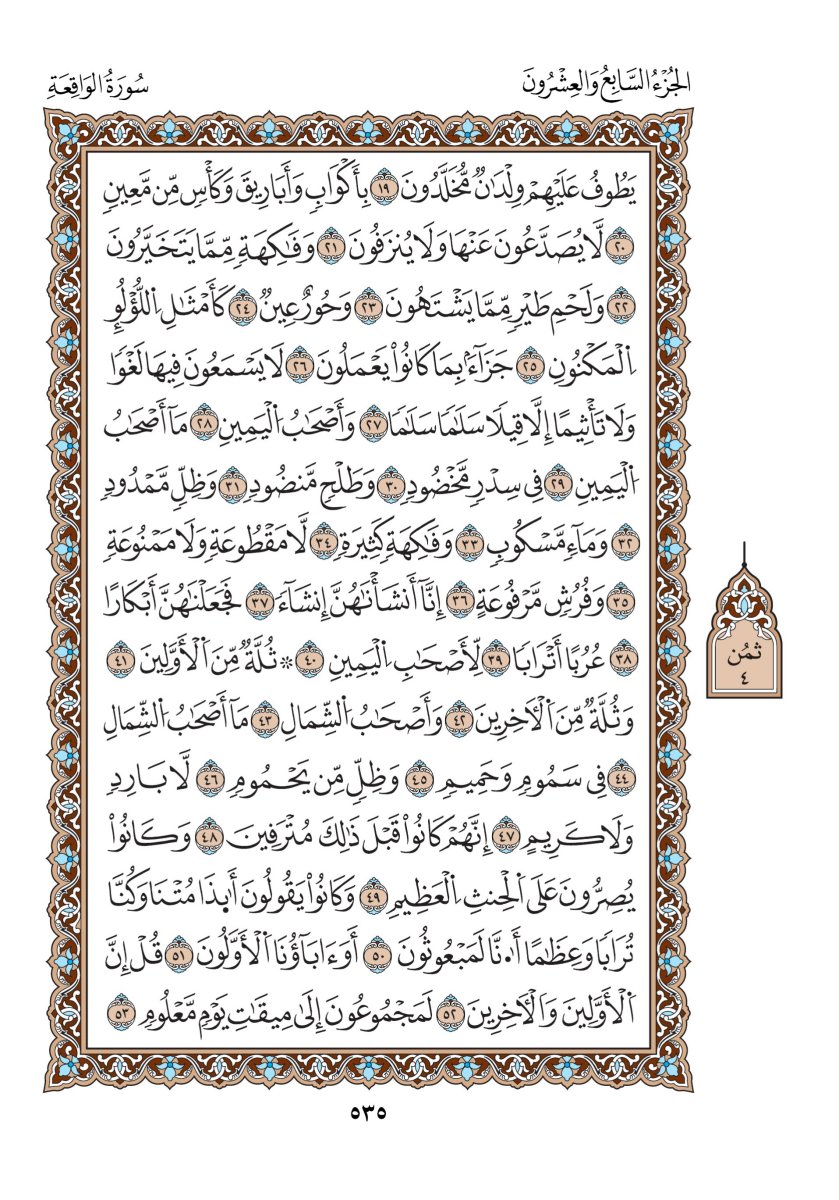 الجُزْءُ السَّابِعُ وَالعِشْرُونَ
سُورَةُ الوَاقِعَةِ
يَطُوفُ عَلَيْهِمْ وِلْدَٰنٌ مُّخَلَّدُونَ ١٩ بِأَكْوَابٍ وَأَبَارِيقَ وَكَأْسٍ مِّن مَّعِينٍ
٢٠ لَّا يُصَدَّعُونَ عَنْهَا وَلَا يُنزَفُونَ ٢١ وَفَٰكِهَةٍ مِّمَّا يَتَخَيَّرُونَ
٢٢ وَلَحْمِ طَيْرٍ مِّمَّا يَشْتَهُونَ ٢٣ وَحُورٌ عِينٌ ٢٤ كَأَمْثَٰلِ اِ۬للُّؤْلُوِٕ
اِ۬لْمَكْنُونِ ٢٥ جَزَآءَۢ بِمَا كَانُواْ يَعْمَلُونَ ٢٦ لَا يَسْمَعُونَ فِيهَا لَغْوٗا
وَلَا تَأْثِيمًا إِلَّا قِيلٗا سَلَٰمٗا سَلَٰمٗا ٢٧ وَأَصْحَٰبُ اُ۬لْيَمِينِ ٢٨ مَآ أَصْحَٰبُ
اُ۬لْيَمِينِ ٢٩ فِى سِدْرٍ مَّخْضُودٍ ٣٠ وَطَلْحٍ مَّنضُودٍ ٣١ وَظِلٍّ مَّمْدُودٍ
٣٢ وَمَآءٍ مَّسْكُوبٍ ٣٣ وَفَٰكِهَةٍ كَثِيرَةٍ ٣٤ لَّا مَقْطُوعَةٍ وَلَا مَمْنُوعَةٍ
٣٥ وَفُرُشٍ مَّرْفُوعَةٍ ٣٦ إِنَّآ أَنشَأْنَٰهُنَّ إِنشَآءٗ ٣٧ فَجَعَلْنَٰهُنَّ أَبْكَارًا
٣٨ عُرُبًا أَتْرَابٗا ٣٩ لِّأَصْحَٰبِ اِ۬لْيَمِينِ ٤٠ ۞ ثُلَّةٌ مِّنَ اَ۬لْأَوَّلِينَ ٤١
وَثُلَّةٌ مِّنَ اَ۬لْأٓخِرِينَ ٤٢ وَأَصْحَٰبُ اُ۬لشِّمَالِ ٤٣ مَآ أَصْحَٰبُ اُ۬لشِّمَالِ
٤٤ فِى سَمُومٍ وَحَمِيمٍ ٤٥ وَظِلٍّ مِّن يَحْمُومٍ ٤٦ لَّا بَارِدٍ
وَلَا كَرِيمٍ ٤٧ إِنَّهُمْ كَانُواْ قَبْلَ ذَٰلِكَ مُتْرَفِينَ ٤٨ وَكَانُواْ
يُصِرُّونَ عَلَى اَ۬لْحِنثِ اِ۬لْعَظِيمِ ٤٩ وَكَانُواْ يَقُولُونَ أَى۪ٕذَا مُتْنَا وَكُنَّا
تُرَابٗا وَعِظَٰمًا أَ۟نَّا لَمَبْعُوثُونَ ٥٠ أَوَءَابَآؤُنَا اَ۬لْأَوَّلُونَ ٥١ قُلْ إِنَّ
اَ۬لْأَوَّلِينَ وَالْأٓخِرِينَ ٥٢ لَمَجْمُوعُونَ إِلَىٰ مِيقَٰتِ يَوْمٍ مَّعْلُومٍ ٥٣
ثمُن
٤
٥٣٥